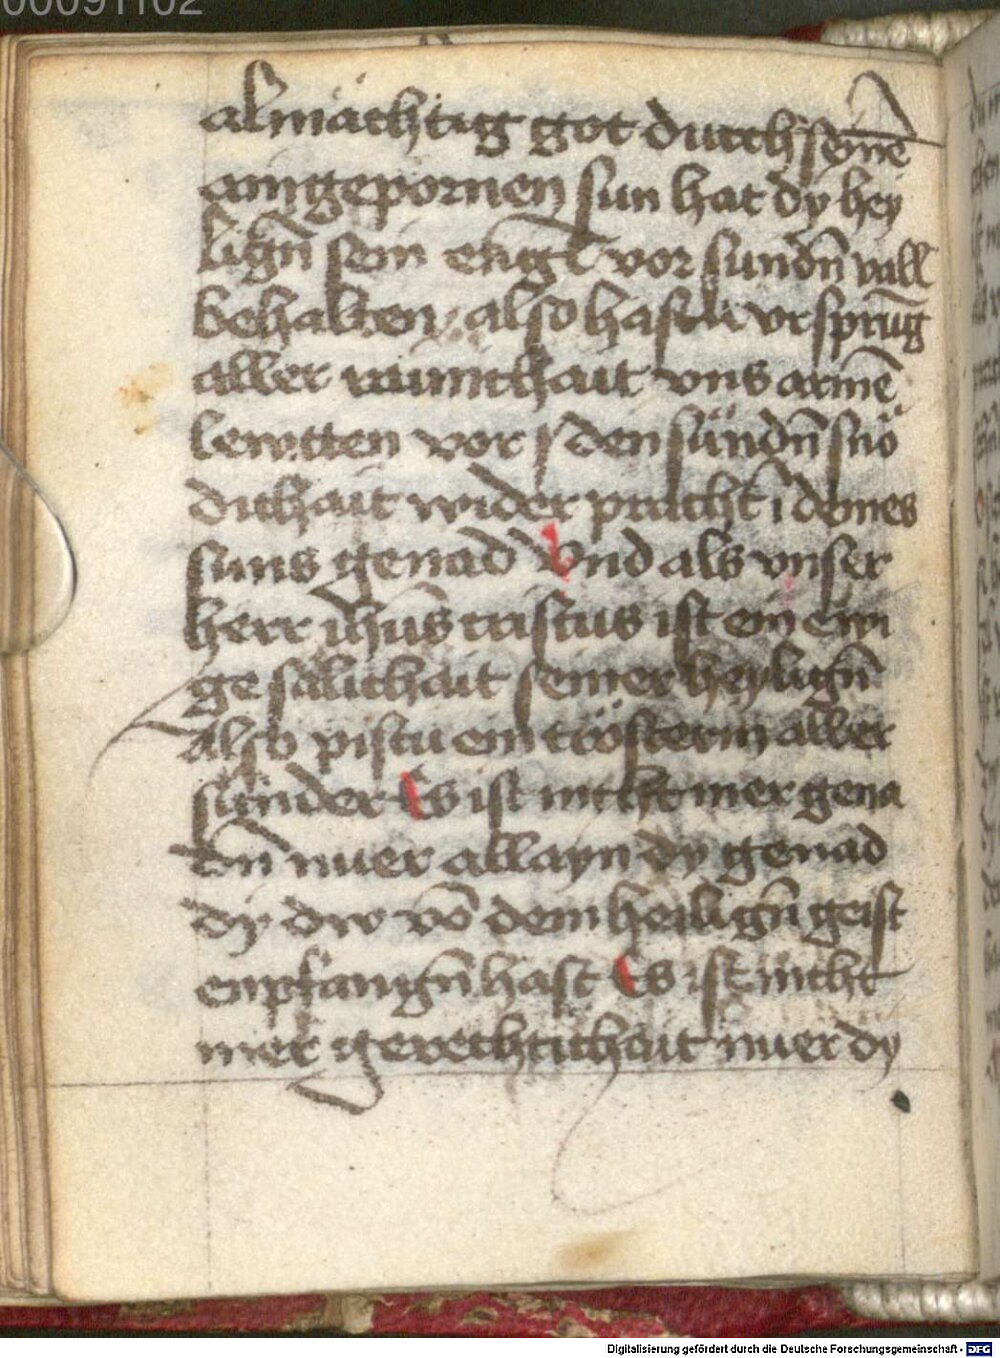 00091102
almächtig got durch seinē
aingepornen sun hat dy hey
lign̄ sein engl vor sundn̄ vall
behalten also hastu vrsprūg
aller rainikhait vns armē
lewtten vor den sündn̄ snö
dichait wider pracht ī deines
suns genad Vnd als vnser
herr ihūs cristus ist ein ewi
ge sälichait seiner heylign̄
Also pistu ein trösterin aller
sünder Es ist nicht mer gena
dn̄ nuer allayn dy genad
dy dw vō dem heilign̄ geist
enpfangn̄ hast Es ist nicht
mer gerechtichait nuer dy
Digitalisierung gefördert durch die Deutsche Forschungsgemeinschaft - DFG